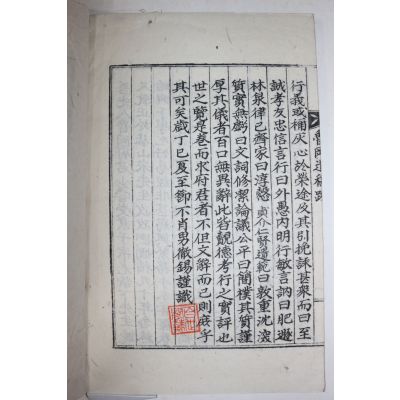 行義或稱灰心於榮途及其引挽誄甚衆而曰至
誠孝友忠信言行曰外愚内明行敏言訥曰肥遯
林泉律己齊家曰淳慤貞介仁賢遺範曰敦重沈淡
質實無虧曰文詞修潔論議公平曰簡樸其質謹
厚其儀者百口無異辭此皆覩德考行之實評也
世之覽是卷而求府君者不但文辭而已則庶乎
其可矣歲丁巳夏至節不肖男徹錫謹識